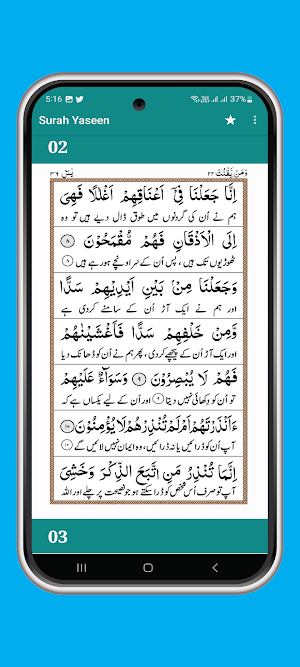 5:16 37%
Surah Yaseen
02
يٰسٓ ٣٦ وَمَن يَّقْنُتْ ٢٢
اِنَّا جَعَلْنَا فِيْٓ اَعْنَاقِهِمْ اَغْلٰلًا فَهِيَ
ہم نے اُن کی گردنوں میں طوق ڈال دیے ہیں تو وہ
اِلَى الْاَذْقَانِ فَهُمْ مُّقْمَحُوْنَ ٨
ٹھوڑیوں تک ہیں، پس اُن کے سر اونچے ہو رہے ہیں ٨
وَجَعَلْنَا مِنْۢ بَيْنِ اَيْدِيْهِمْ سَدًّا
اور ہم نے ایک آڑ اُن کے سامنے کردی ہے
وَّمِنْ خَلْفِهِمْ سَدًّا فَاَغْشَيْنٰهُمْ
اور ایک آڑ اُن کے پیچھے کردی، پھر ہم نے اُن کو ڈھانک دیا
فَهُمْ لَا يُبْصِرُوْنَ ٩ وَسَوَآءٌ عَلَيْهِمْ
تو اُن کو دکھائی نہیں دیتا ٩ اور اُن کے لیے یکساں ہے کہ
ءَاَنْذَرْتَهُمْ اَمْ لَمْ تُنْذِرْهُمْ لَا يُؤْمِنُوْنَ ١٠
آپ اُن کو ڈرائیں یا نہ ڈرائیں، وہ ایمان نہیں لائیں گے ١٠
اِنَّمَا تُنْذِرُ مَنِ اتَّبَعَ الذِّكْرَ وَخَشِيَ
آپ تو صرف اُس شخص کو ڈرا سکتے ہو جو نصیحت پر چلے اور اللہ
03